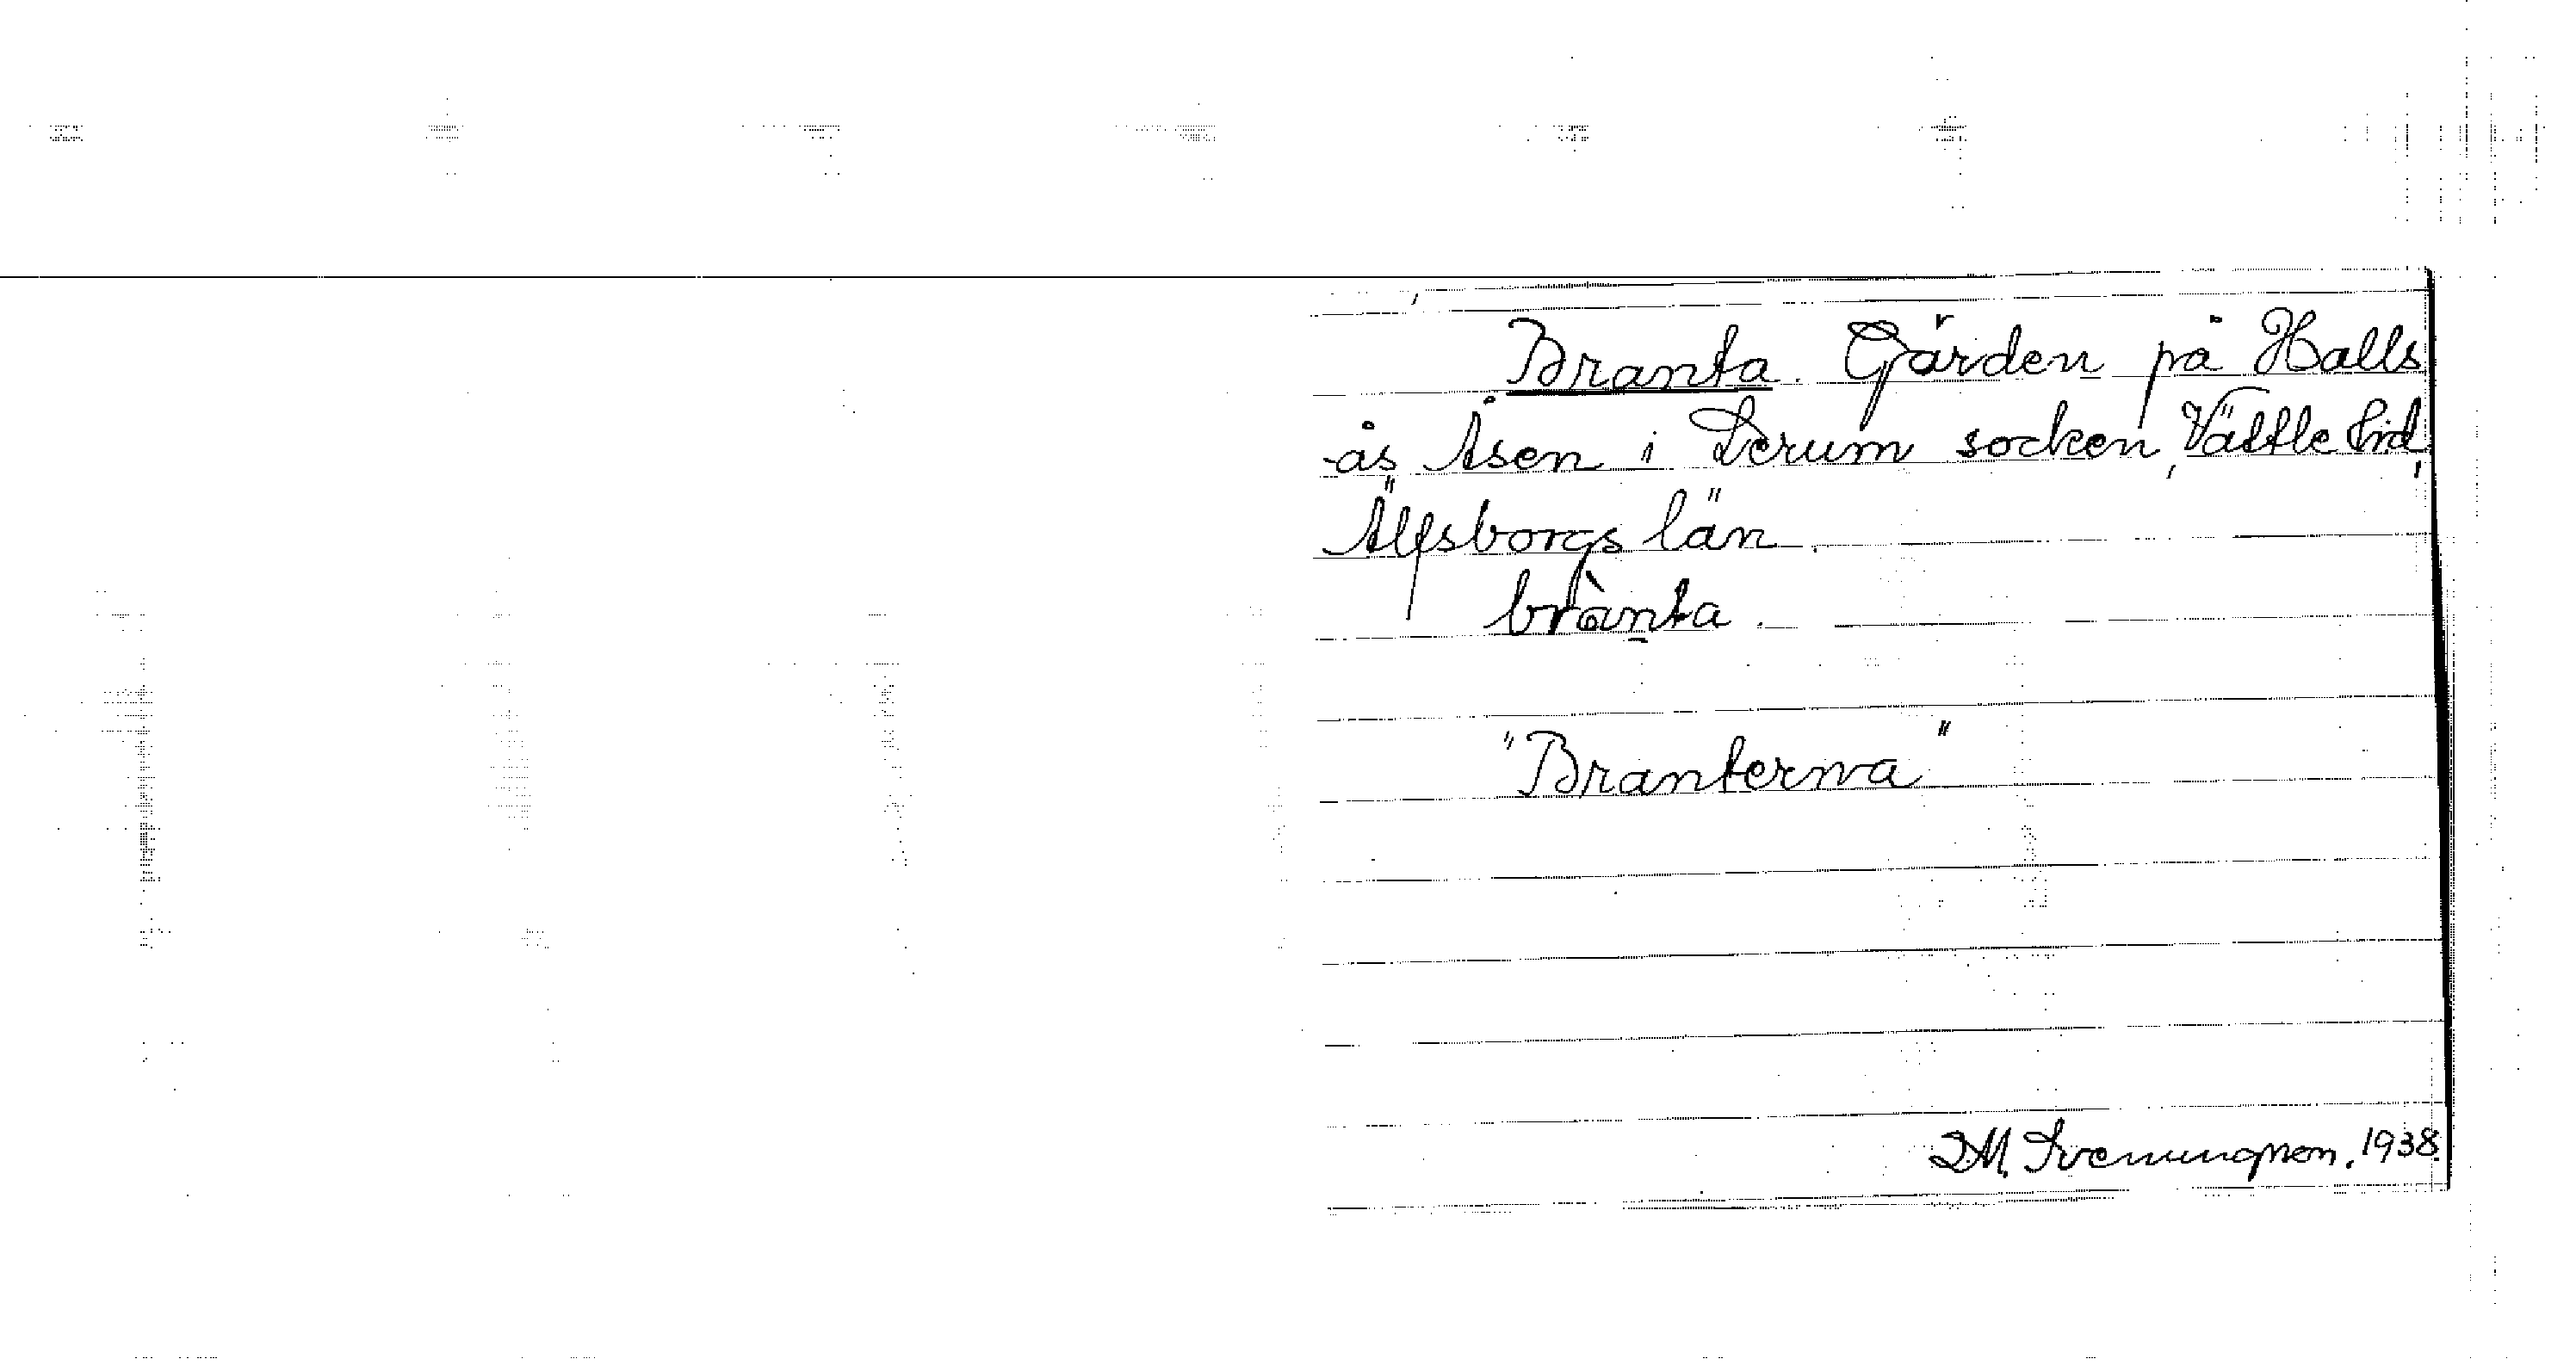 Branta. Gården på Halls
-ås Åsen i Lerum socken, Vättle hd,
Älfsborgs län.
brànta.
"Branterna"
D.M. Svenningson. 1938.